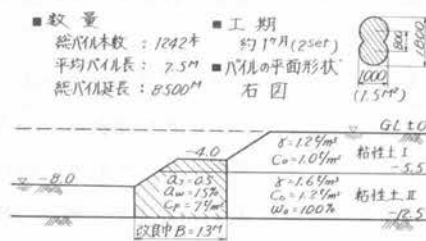 ■数量
総パイル本数：1242本
平均パイル長：7.5M
総パイル延長：8500M
■工期
約1ヶ月(2set)
■パイルの平面形状
右図
800
1,800
1000
(1.5M²)
GL±0
-4.0
γ=1.2t/m³
C₀=1.0t/m²
粘性土Ⅰ
-5.5
-8.0
as=0.5
aw=15%
Cp=7t/m²
γ=1.6t/m³
C₀=1.2t/m²
W₀=100%
粘性土Ⅱ
-12.5
改良巾B=13M